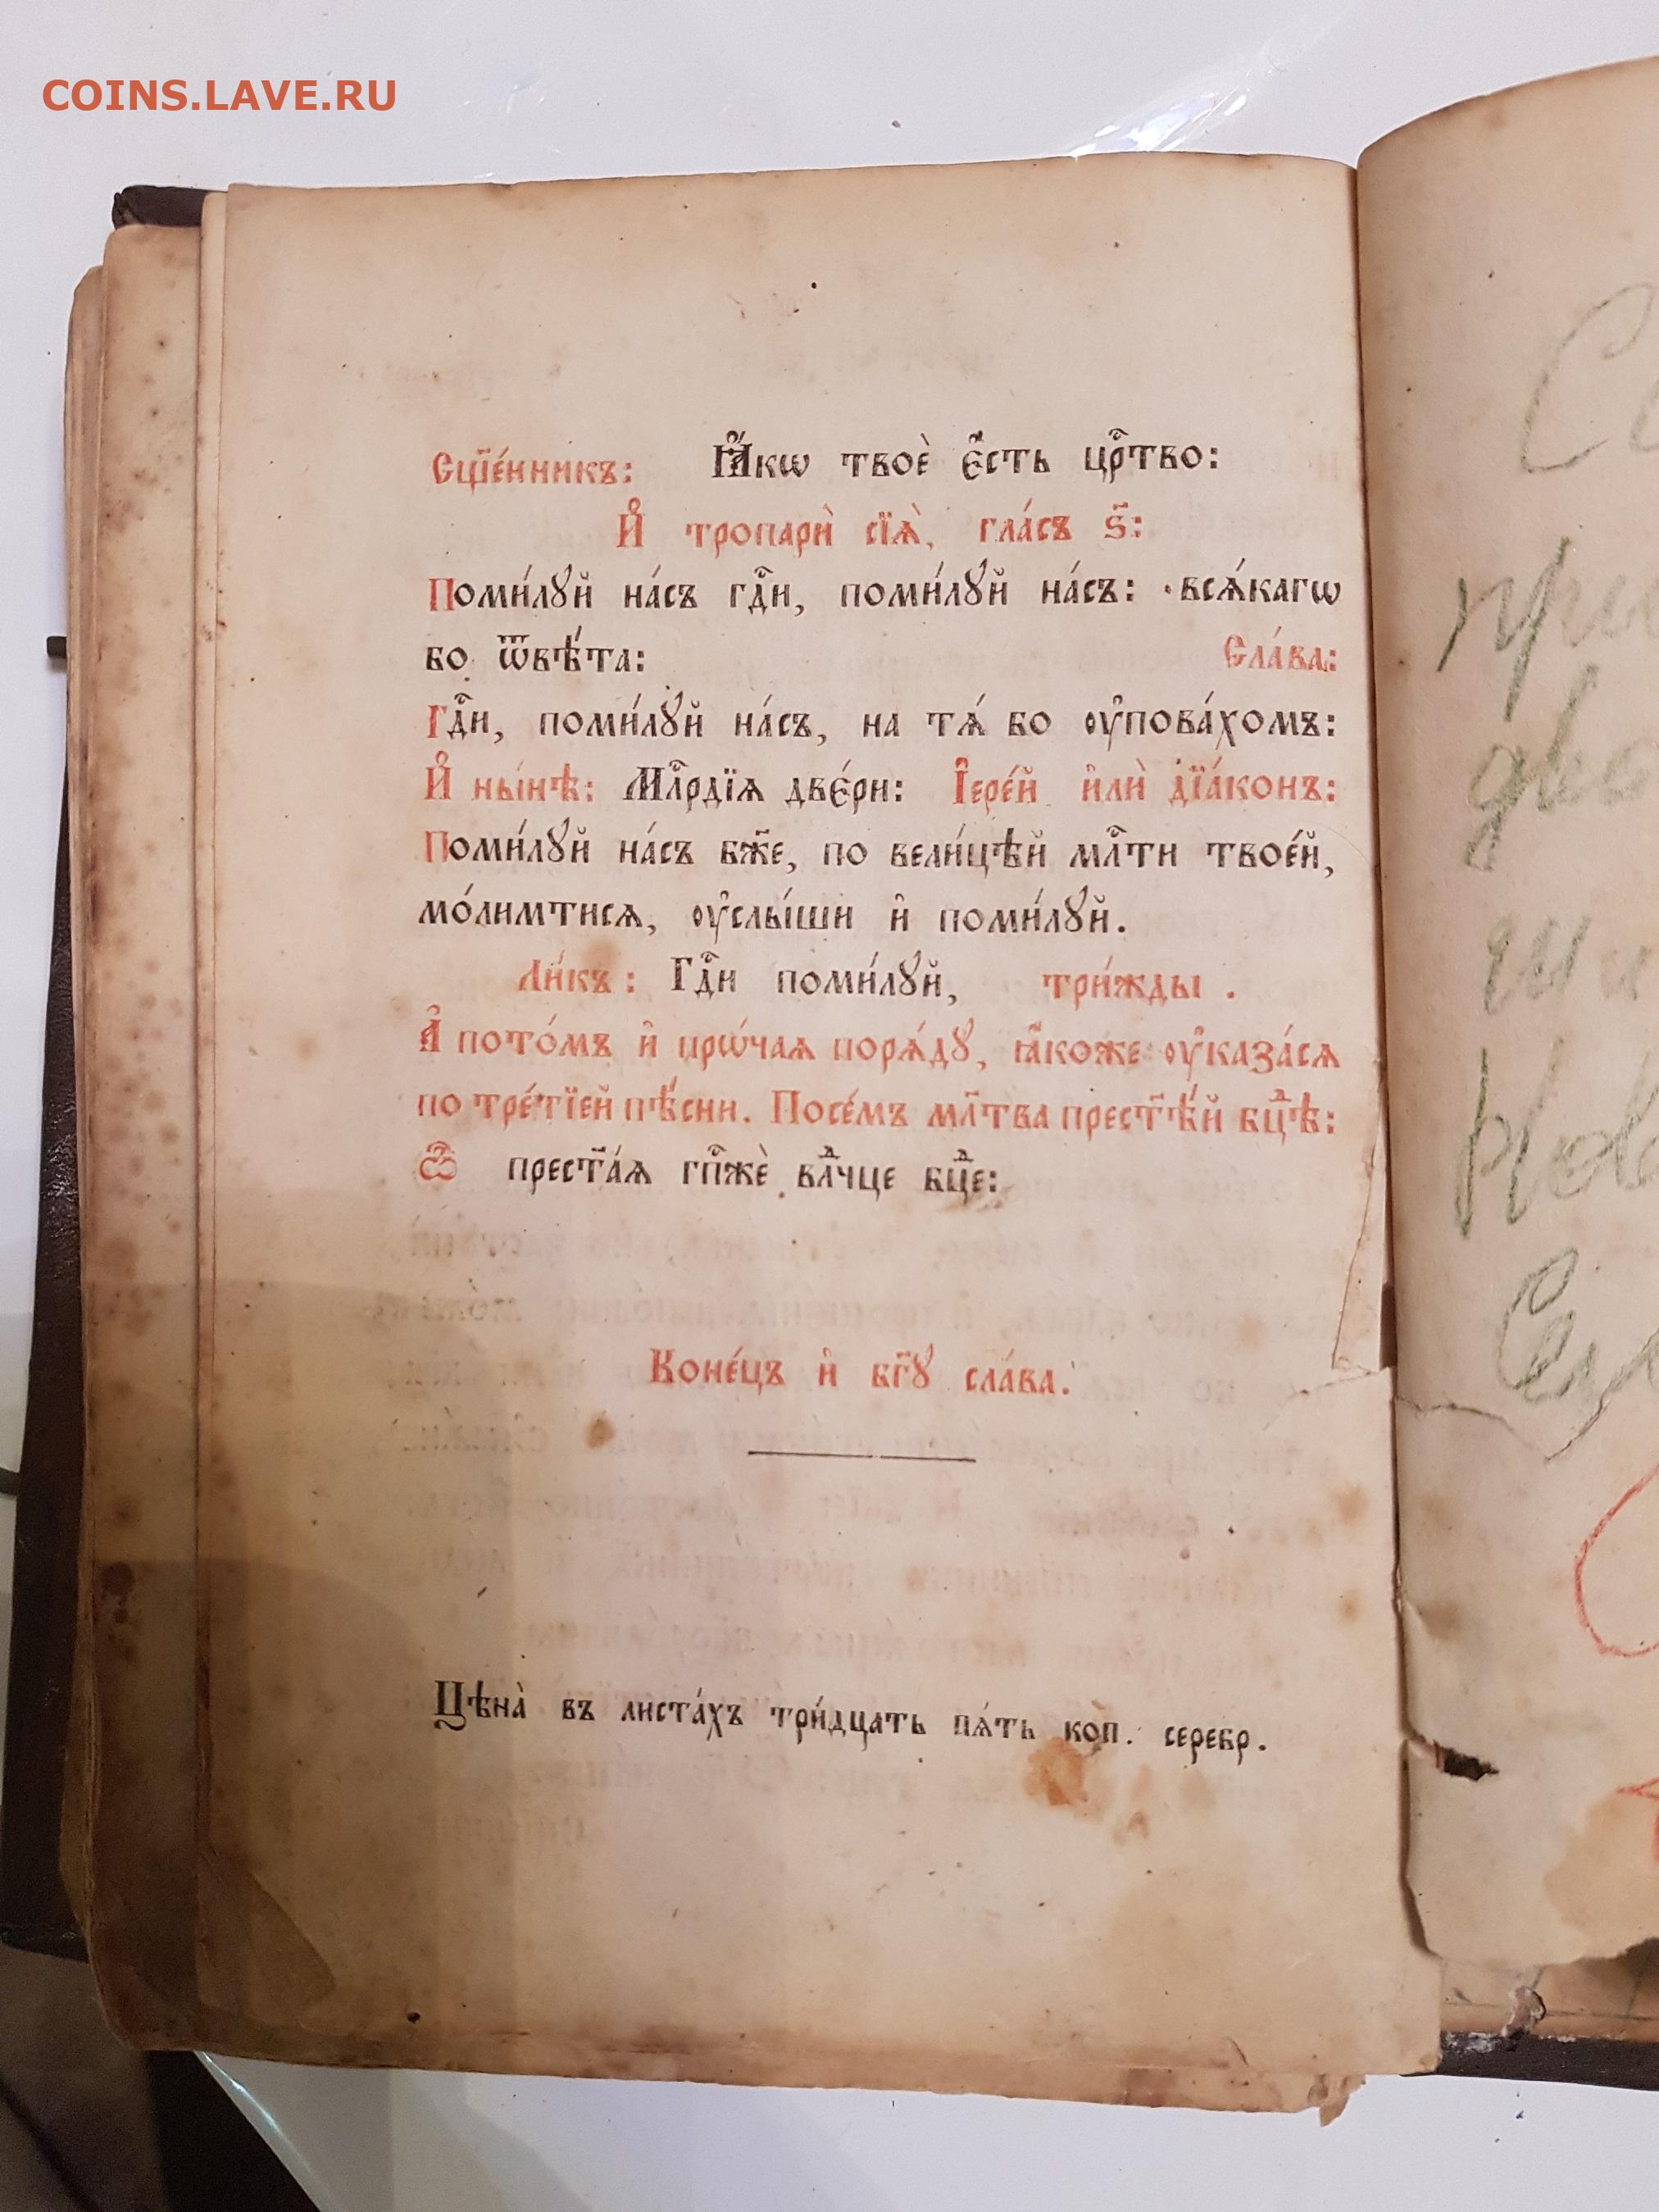 COINS.LAVE.RU
Сщ҃е́нникъ: Ꙗ҆́кѡ твоѐ є҆́сть црⷭ҇тво:
И҆ тропарѝ сїѧ̀, гла́съ ѕ҃:
Поми́лꙋй на́съ гдⷭ҇и, поми́лꙋй на́съ: всѧ́кагѡ
бо ѿвѣ́та: Сла́ва:
Гдⷭ҇и, поми́лꙋй на́съ, на тѧ́ бо ᲂу҆пова́хомъ:
И҆ ны́нѣ: Млⷭ҇рдїѧ две́ри: І҆ере́й и҆лѝ дїа́конъ:
Поми́лꙋй на́съ бж҃е, по вели́цѣй млⷭ҇ти твое́й,
мо́лимтисѧ, ᲂу҆слы́ши и҆ поми́лꙋй.
Ли́къ: Гдⷭ҇и поми́лꙋй, три́жды.
А҆ пото́мъ и҆ прѡ́чаѧ порѧ́дꙋ, ꙗ҆́коже ᲂу҆каза́сѧ
по тре́тїей пѣ́сни. Посе́мъ мл҃тва прест҃ѣ́й бцⷣѣ:
Ѽ прест҃а́ѧ гпⷭ҇жѐ влⷣчце бцⷣе:
Коне́цъ и҆ бг҃ꙋ сла́ва.
Цѣна̀ въ листа́хъ три́дцать пѧ́ть ко̀п. серебр.